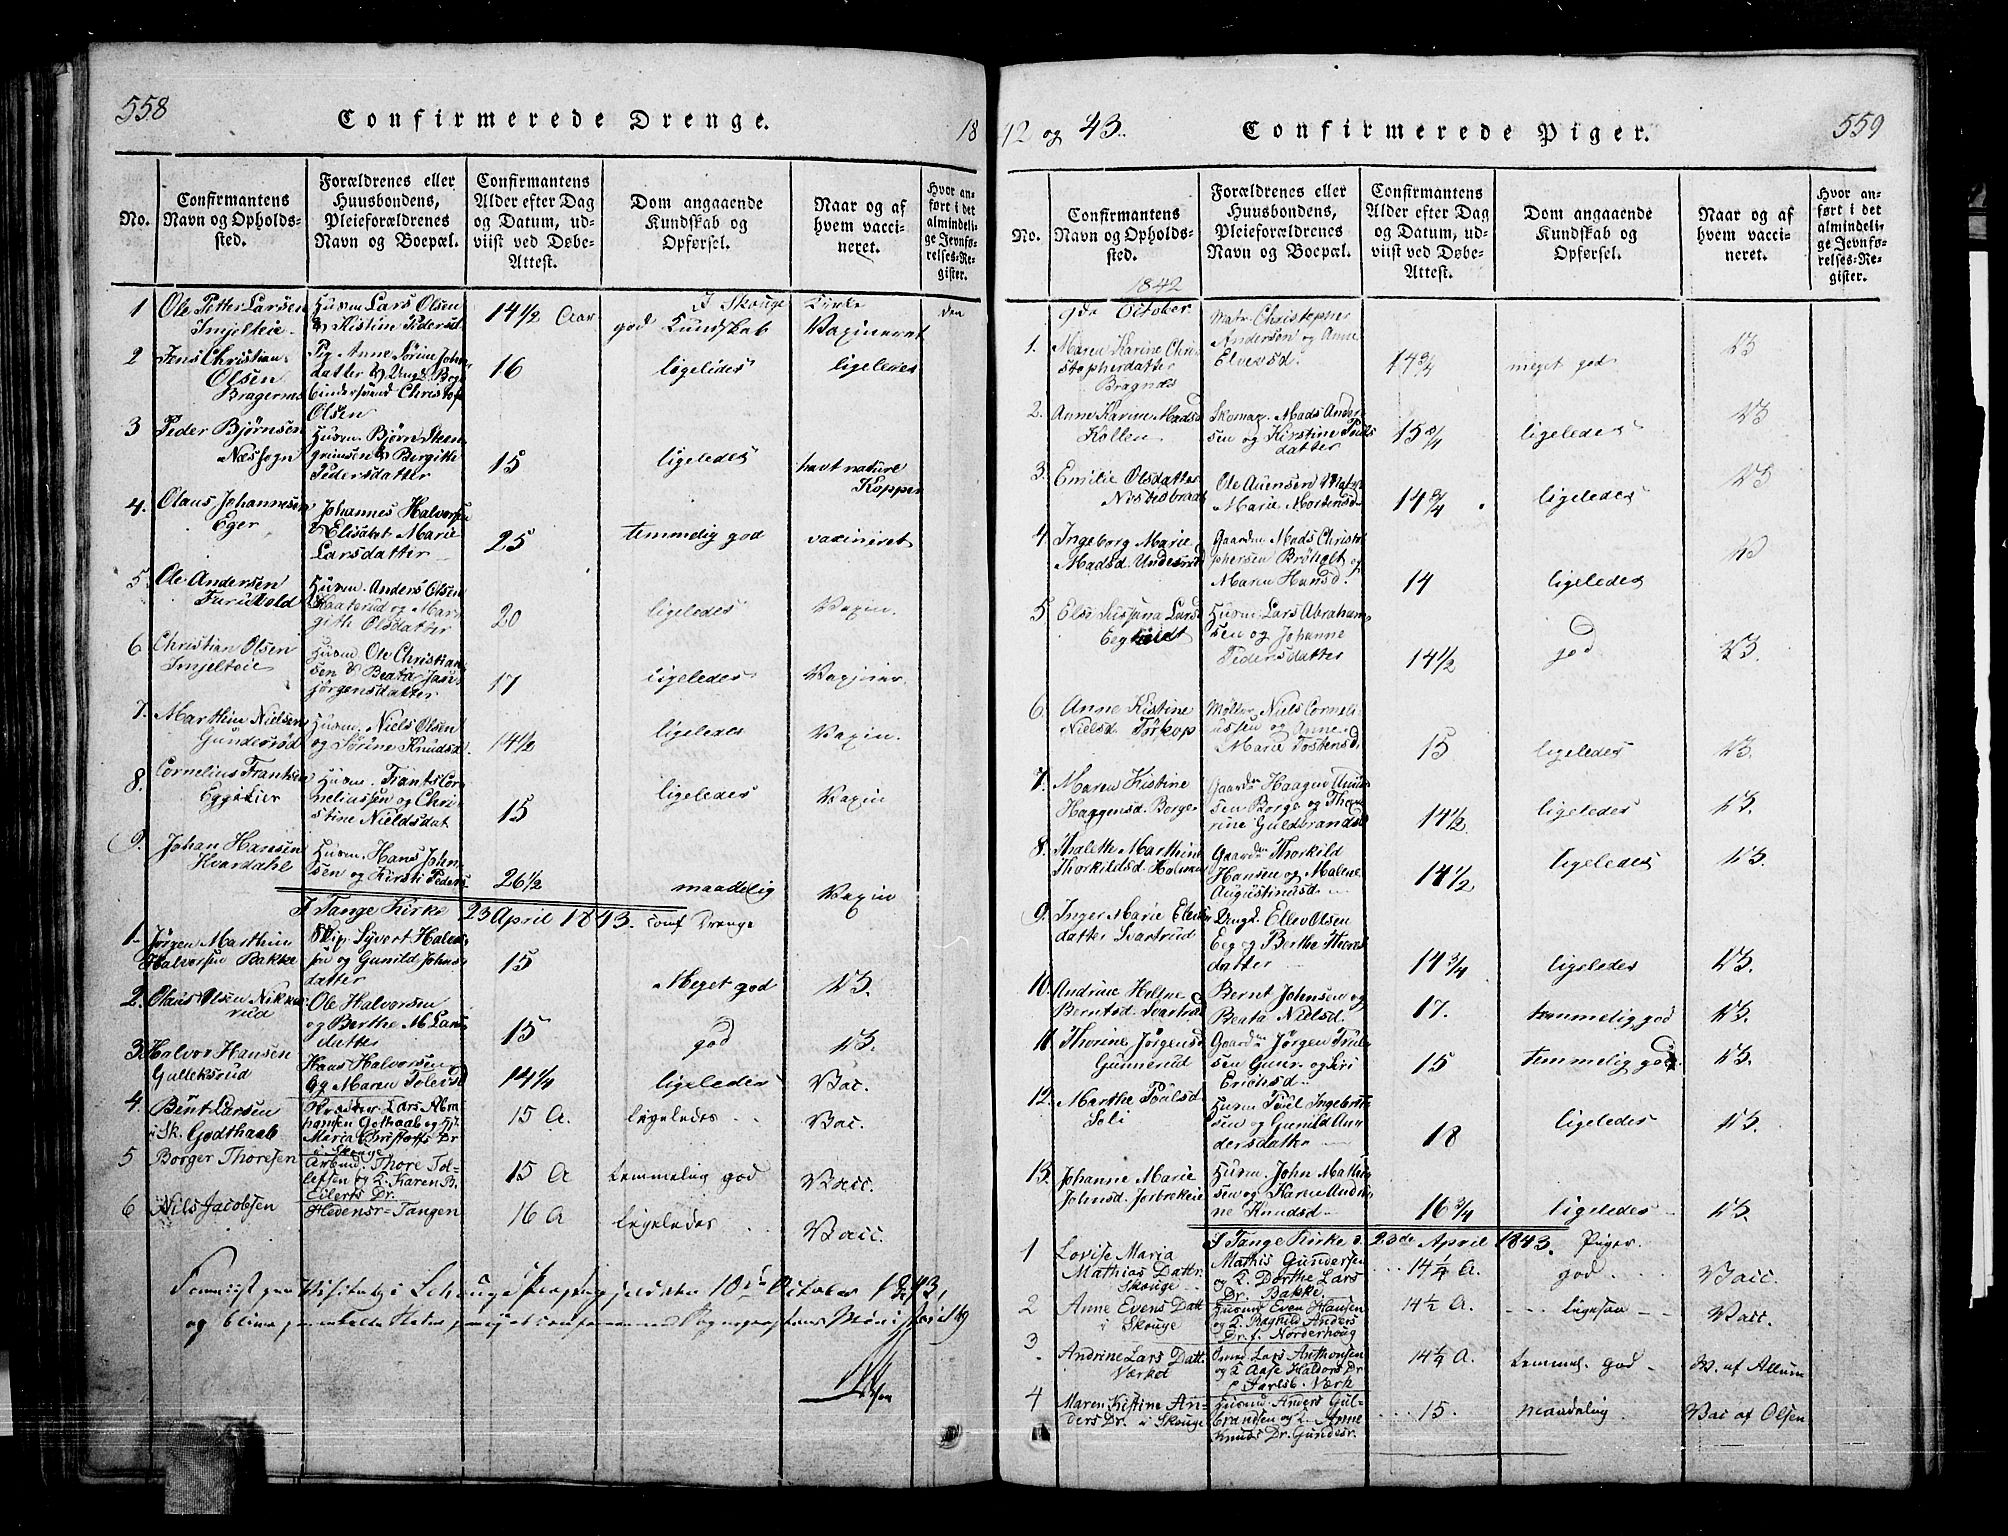 558
Confirmerede Drenge.
18
No.
Confirmantens
Navn og Opholds-
sted.
Forældrenes eller
Huusbondens,
Pleieforældrenes
Navn og Boepæl.
Confirmantens
Alder efter Dag
og Datum, ud-
viist ved Døbe-
Attest.
Dom angaaende
Kundskab og
Opførsel.
Naar og af
hvem vacci-
neret.
Hvor an-
ført i det
almindeli-
ge Jevnfø-
relses-Re-
gister.
I Skouge Kirke den
1
Ole Petter Larsen
Injelteie
Husm Lars Olsen
& Kistine Pedersd
14 1/2 Aar
god Kundskab
Vaxineret
2
Jens Christian
Olsen
Bragernes
Pig Anne Sørine John
datter & Ungd. Bog
bindersvend Christof
Olsen
16
ligeledes
ligeledes
3
Peder Bjørnsen
Næssogn
Husm. Bjørn Steen
grimsen & Bergitte
Pedersdatter
15
ligeledes
havt nature
Kopper
4.
Olaus Johannesen
Eger
Johannes Halvorsen
& Elisabet Marie
Larsdatter
25
temmelig god
vaxineret
5
Ole Andersen
Furuvold
Husm. Anders Olsen
Kaaterud og Mar
githe Olsdatter
20
ligeledes
Vaxin.
6
Christian Olsen
Injelteie
Husm Ole Christian
sen & Beata
Jørgensdatter
17
ligeledes
Vaxiner.
7.
Marthin Nielsen
Gundesrød
Husm. Niels Olsen
og Sørine Knudsd.
14 1/2
ligeledes
Vaxin.
8.
Cornelius Frantsen
Eggeteier
Husm. Frants Cor
neliussen og Chri
stine Nieldsdat
15
ligeledes
Vaxin
9.
Johan Hansen
Hvardahl
Husm. Hans John
sen og Kirsti Peders
26 1/2
maadelig
Vaxin
I Tange Kirke 23 April 1843. conf Drenge
1.
Jørgen Marthin
Halvorsen Bakke
Skip. Syvert Halvor
sen og Gunild Johns
datter
15
Meget god
V3.
2.
Olaus Olsen Nikke
rud
Ole Halvorsen
og Berthe M Lars
datter
15
god
V3.
3.
Halvor Hansen
Gulleksrud
Hans Halvorsen
Og Maren Tolevsd
14 1/4
ligeledes
Vac.
4.
Bent Larsen
i Sk. Godthaab
Lars Abra
hamsen Gothaab og
Maria Christoffs Dr
i Skouge
15 A.
ligeledes
Vac.
5
Borger Thoresen
Arbmd. Thore Tol-
lefsen og K. Karen B.
Eilerts Dr.
15 A
temmelig god
Vacc.
6
Nils Jacobsen
Hedensr-Tangen
16 A
ligeledes
Vacc.
Visitats i Schouge Præstegjeld den 10de October 1843,
42 og 43.
Confirmerede Piger.
559
No.
Confirmantens
Navn og Opholds-
sted.
Forældrenes eller
Huusbondens,
Pleieforældrenes
Navn og Boepæl.
Confirmantens
Alder efter Dag
og Datum, ud-
viist ved Døbe-
Attest.
Dom angaaende
Kundskab og
Opførsel.
Naar og af
hvem vacci-
neret.
Hvor an-
ført i det
almindeli-
ge Jevnfø-
relses-Re-
gister.
1842
9de October
1.
Maren Karine Chri
stopherdatter
Bragnæs
Matr. Christopher
Andersøn og Anne
Elversd.
14 3/4
meget god
V3
2.
Anne Karine Madsd
Kollen
Skomag. Mads Ander
sen og Kirstine Pouls
datter
15 3/4
ligeledes
V3
3.
Emilie Olsdatter
Nøstedbraat
Ole Auensen
Marie Mortensd.
14 3/4
ligeledes
V3
4.
Ingeborg Marie
Madsd. Undesrud
Gaardm Mads Christo
phersen Brøholt og
Maren Hansd.
14
ligeledes
V3
5
Else Kistiana Larsd
Husm. Lars Abraham
sen og Johanne
Pedersdatter
14 1/2
god
V3.
6.
Anne Kistine
Nielsd. Tørkop
Møller Niels Corneli
ussen og Anne
Marie Tostensd
15
ligeledes
V3.
7.
Maren Kistine
Haggensd. Borge
Gaardm Haagen Amun
sen Borge og Thore
rine Guldbrandsd
14 1/2
ligeledes
V3.
8.
Malette Marthine
Thorkildsd. Holmen
Gaardm Thorkild
Hansen og Malene
Augustinusd.
14 1/2
ligeledes
V3.
9.
Inger Marie Elevs
datter Svartrud
Ungd. Ellev Olsen
Eeg og Berthe Thores
datter
14 3/4
ligeledes
V3.
10.
Andrine Helene
Berntsd. Svartrud
Bernt Johnsen og
Beata Nielsd.
17.
temmelig god
V3.
11.
Thorine Jørgensd
Gunnerud
Gaardm Jørgen Truls
sen Gunr. og Siri
Erichsd.
15
temmelig god.
V3.
12.
Marthe Poulsd
Soli
Husm Poul Ingebrit
sen og Gunild An
dersdatter
18
ligeledes
V3.
13.
Johanne Marie
Johnsd. Jorbrekeie
Husm. John Mathis
sen og Karen Andri
ne Knudsd.
16 3/4
ligeledes
V3.
I Tange Kirke d. 23de April 1843. Piger.
1
Lovise Maria
Mathias Dattr.
Skouge
Mathis Gundersen
og K. Dorthe Lars
Dr. Bakke.
14 1/4 A.
god
Vacc.
2
Anne Evens Datt
i Skouge
Husmd Even Hansen
og K. Ragnild Anders
Dr. f. Norderhoug
14 1/2 A.
ligesaa
Vacc.
3.
Andrine Lars Datt.
Værket
Lars Anthonsen
og K. Aase Haldors Dr
p Jarlsb. Værk
14 1/4 A.
temmel. god
V. af Allum
4
Maren Kistine An-
ders Dr. i Skouge
Husmd Anders Gul-
brandsen og K. Anne
Knuds Dr. Gundesr.
15.
Maadelig
Vac af Olsen